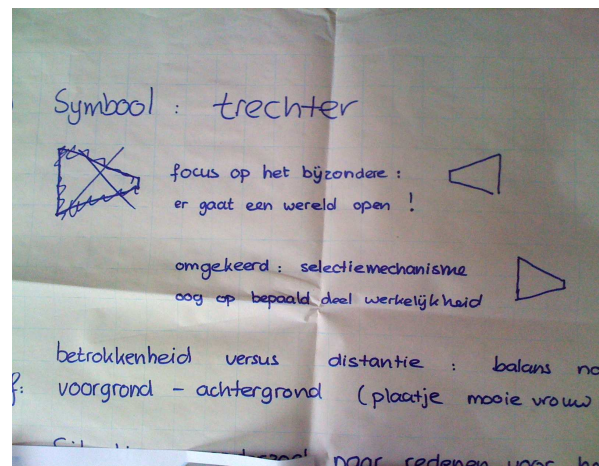 Symbool : trechter
focus op het bijzondere :
er gaat een wereld open !
omgekeerd : selectiemechanisme
oog op bepaald deel werkelijkheid
betrokkenheid versus distantie : balans
voorgrond - achtergrond (plaatje mooie vrouw
naar redenen voor